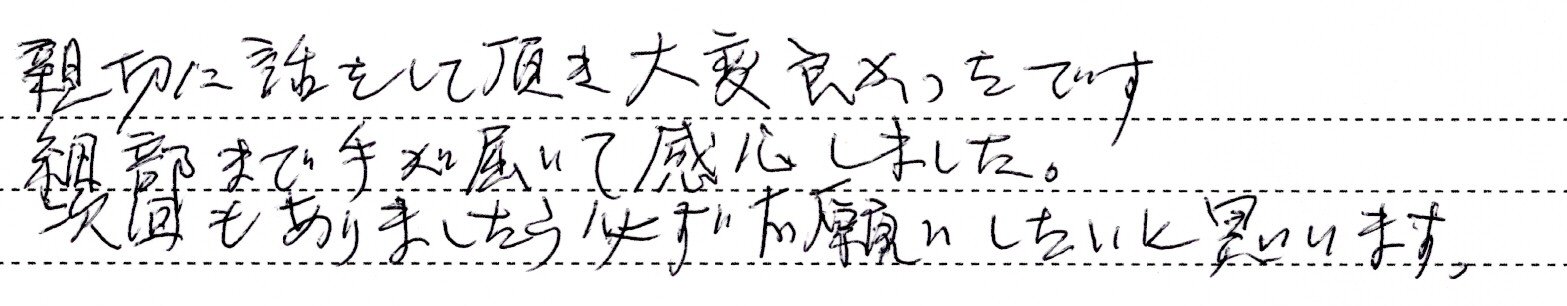 親切に話をして頂き大変良かったです
細部まで手が届いて感心しました。
次回もありましたら必ずお願いしたいと思います。